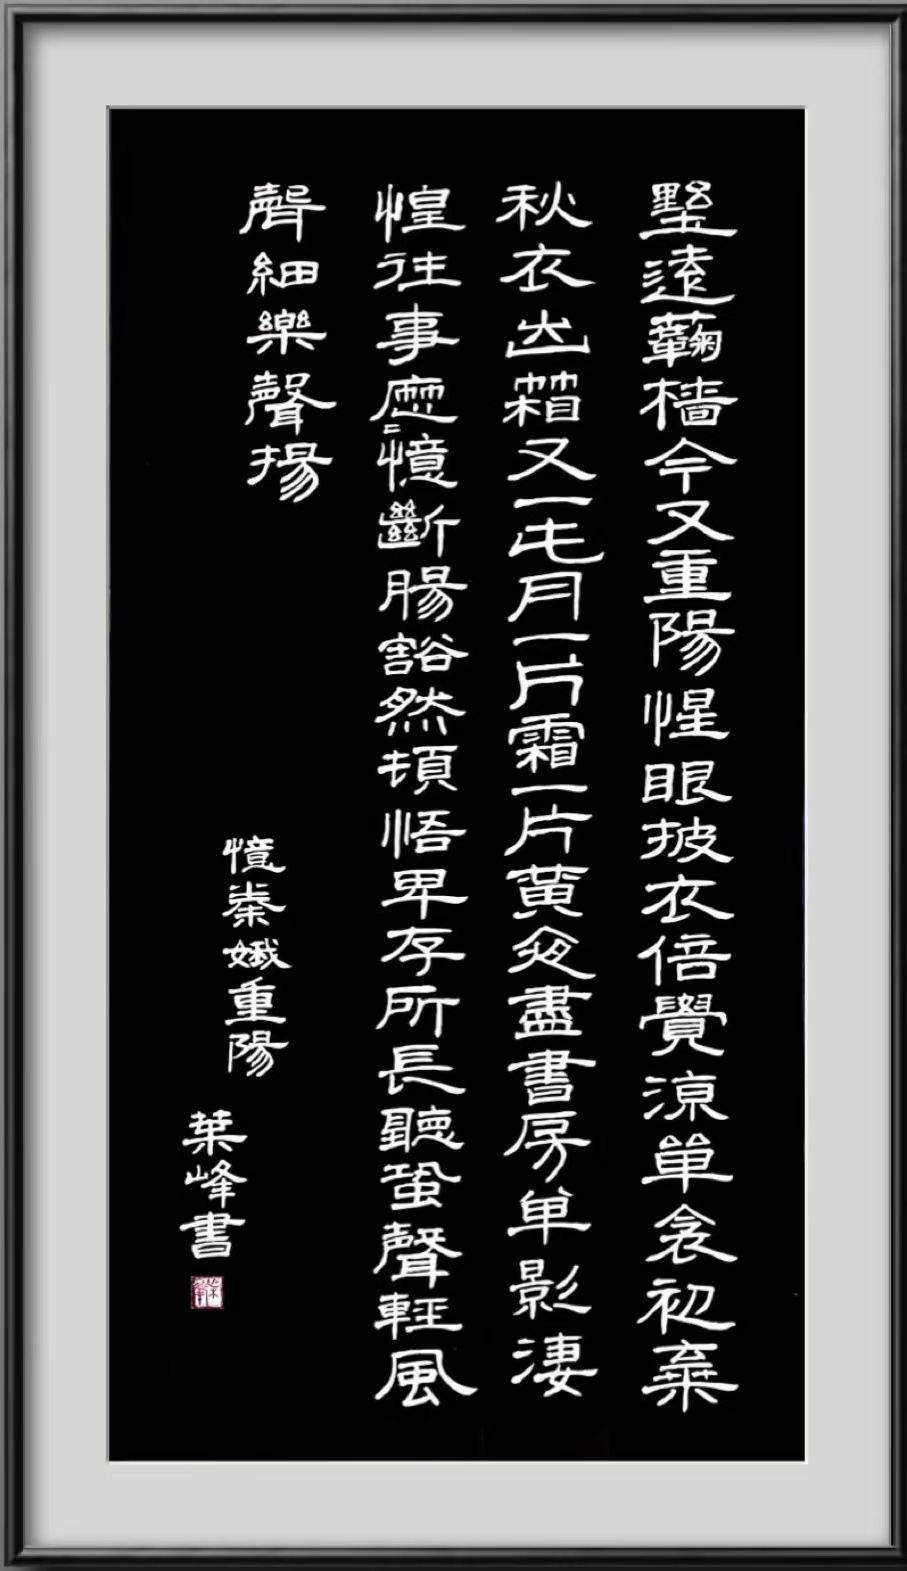 墅遠蘜檣今又重陽惺眼披衣倍覺涼單衾初棄
秋衣出箱又一月一片霜一片黃夜盡書房單影淒
惶往事歷〻憶斷腸豁然頓悟卑存所長聽蛩聲輕風
聲細樂聲揚
憶秦娥重陽
葉峰書